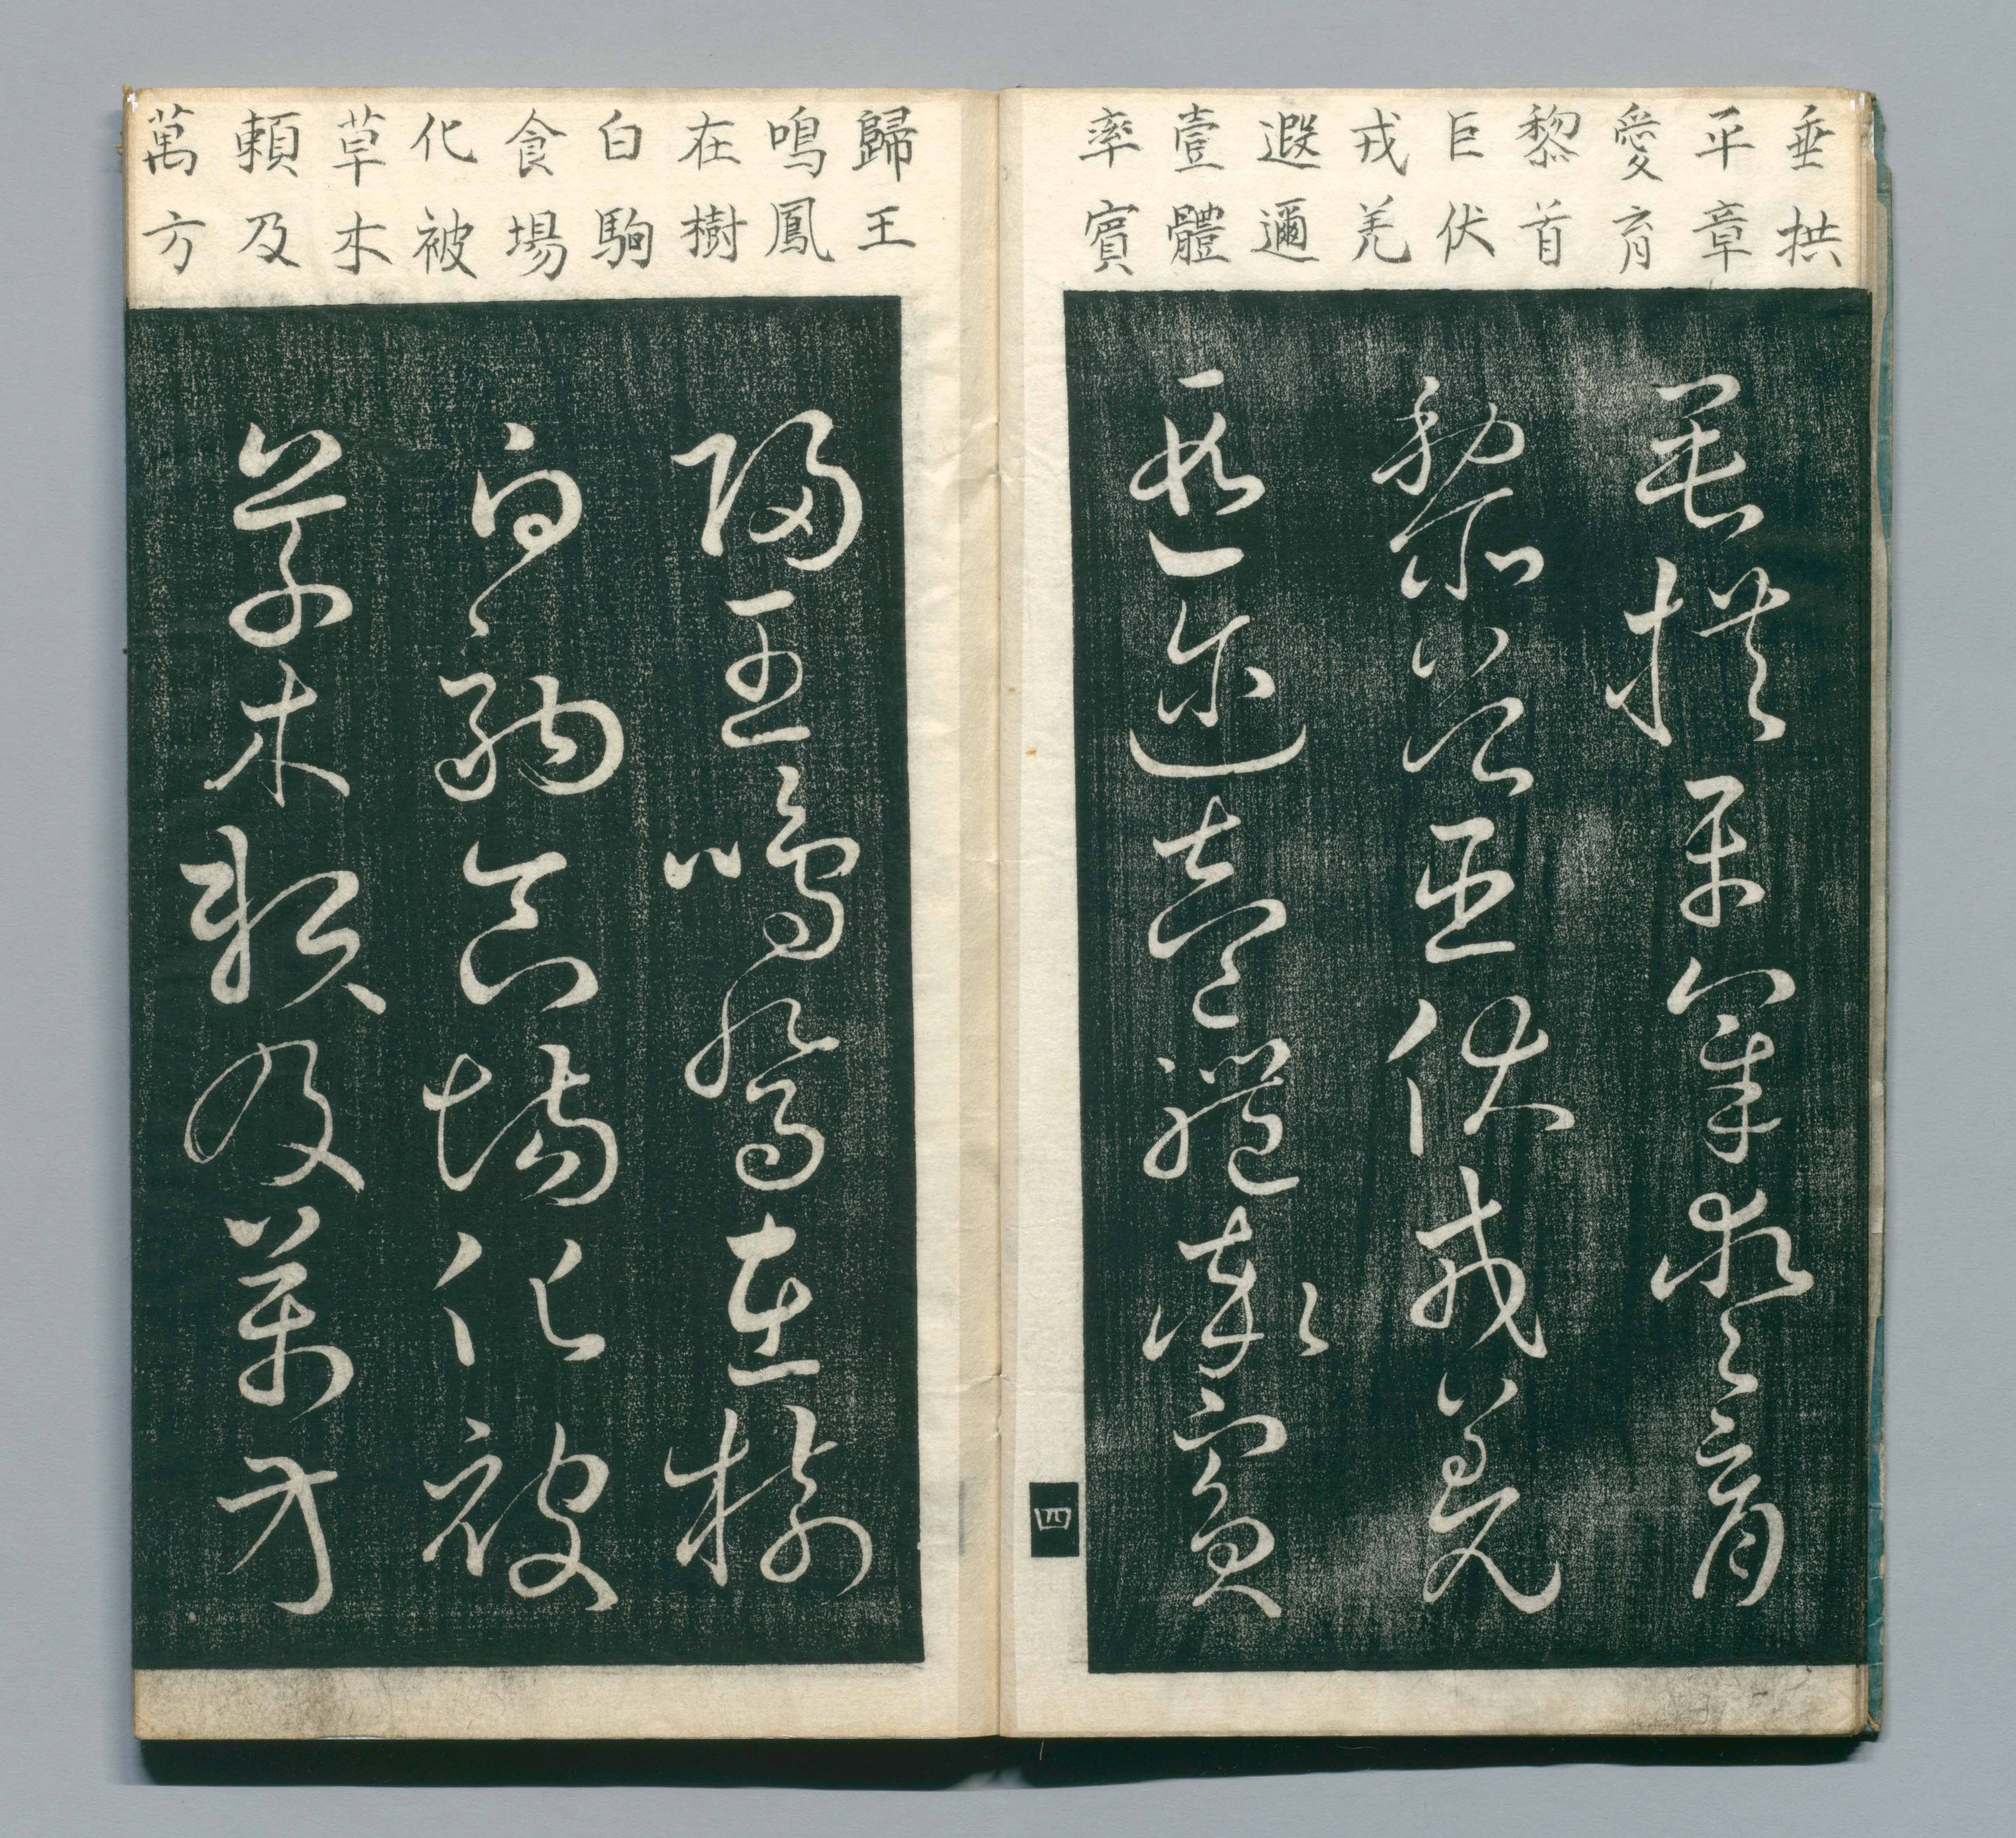 垂拱
平章
愛育
黎首
臣伏
戎羌
遐邇
壹體
率賓
垂拱平章愛育
黎首臣伏戎羌
遐邇壹體率賓
四
歸王
鳴鳳
在樹
白駒
食場
化被
草木
頼及
萬方
歸王鳴鳳在樹
白駒食場化被
草木頼及萬方